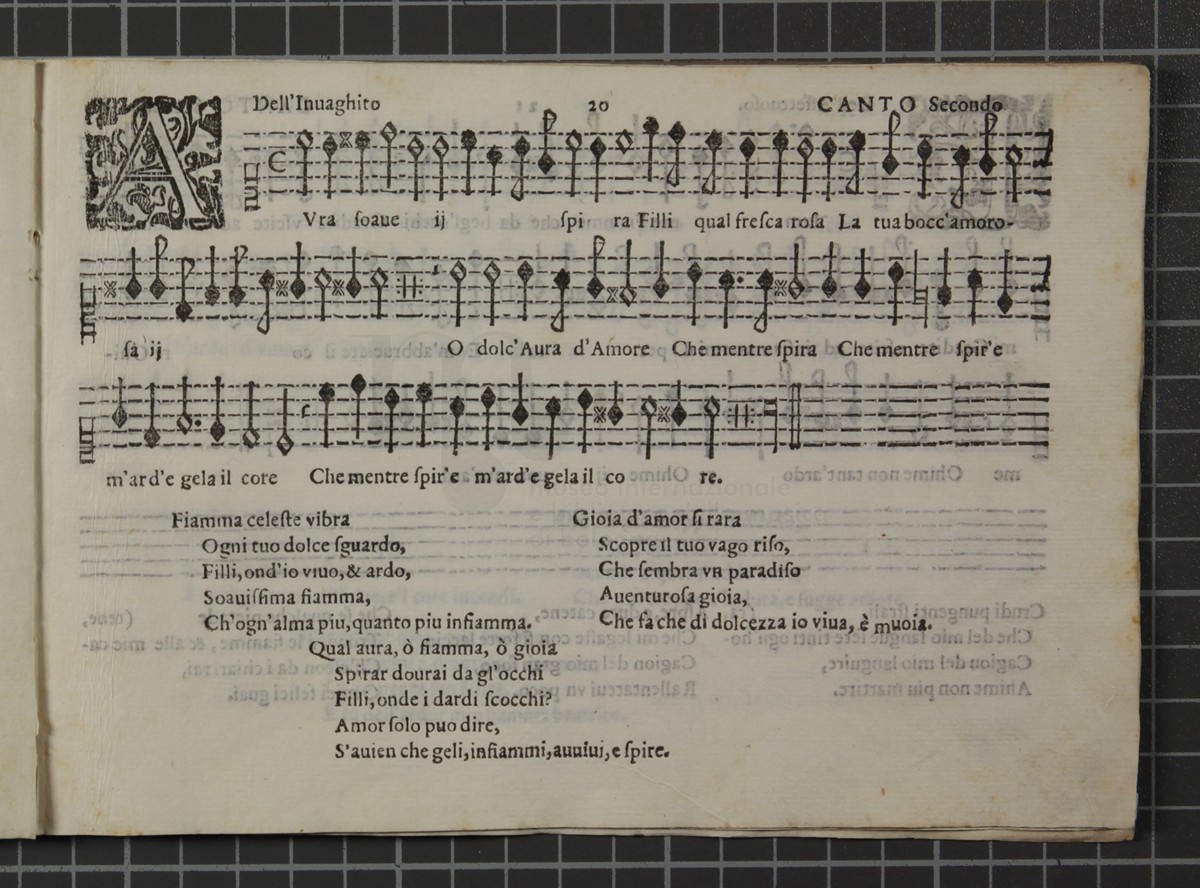 Dell'Inuaghito 20 CANTO Secondo
A Vra ſoaue ij ſpi ra Filli qual freſca roſa La tua bocc'amoro-
ſa ij O dolc'Aura d'Amore Che mentre ſpira Che mentre ſpir'e
m'ard'e gela il core Che mentre ſpir'e m'ard'e gela il co re.
Fiamma celeſte vibra
Ogni tuo dolce ſguardo,
Filli, ond'io viuo, & ardo,
Soauiſſima fiamma,
Ch'ogn'alma piu, quanto piu infiamma.
Gioia d'amor ſi rara
Scopre il tuo vago riſo,
Che ſembra vn paradiſo
Auenturoſa gioia,
Che fa che di dolcezza io viua, è muoia.
Qual aura, ò fiamma, ò gioia
Spirar dourai da gl'occhi
Filli, onde i dardi ſcocchi?
Amor ſolo puo dire,
S'auien che geli, infiammi, auuiui, e ſpire.